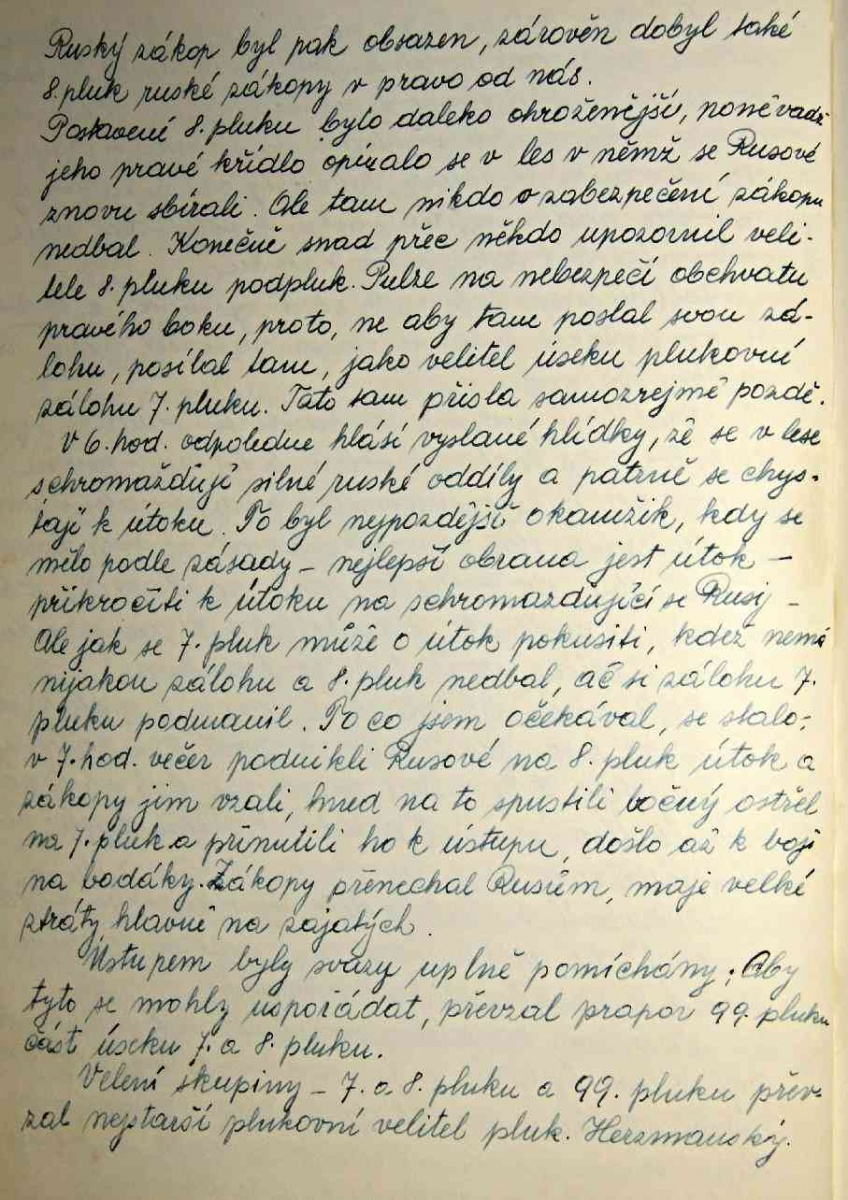 Ruský zákop byl pak obsazen, zárověn dobyl také
8. pluk ruské zákopy v pravo od nás.
Postavení 8. pluku bylo daleko ohroženější, poněvadž
jeho pravé křídlo opíralo se v les v němž se Rusové
znovu sbírali. Ale tam nikdo o zabezpečení zákopu
nedbal. Konečně snad přec někdo upozornil veli-
tele 8. pluku podpluk. Pulze na nebezpečí obchvatu
pravého boku, proto, ne aby tam poslal svou zá-
lohu, posílal tam, jako velitel úseku plukovní
zálohu 7. pluku. Tato tam přišla samozrejmě pozdě.
V 6. hod. odpoledne hlásí vyslané hlídky, že se v lese
schromažďují silné ruské oddíly a patrně se chys-
tají k útoku. To byl nejpozdější okamžik, kdy se
mělo podle zásady – nejlepší obrana jest útok –
přikročiti k útoku na schromazdující se Rusy –
Ale jak se 7. pluk může o útok pokusiti, když nemá
nijakou zálohu a 8. pluk nedbal, ač si zálohu 7.
pluku podmanil. To co jsem očekával, se stalo;
v 7. hod. večer podnikli Rusové na 8. pluk útok a
zákopy jim vzali, hned na to spustili bočný ostřel
na 7. pluk a přinutili ho k ústupu, došlo až k boji
na bodáky. Zákopy přenechal Rusům, maje velké
ztráty hlavně na zajatých.
Ústupem byly svazy uplně pomíchány; Aby
tyto se mohly uspořádat, převzal prapor 99. pluku
část úseku 7. a 8. pluku.
Velení skupiny – 7. a 8. pluku a 99. pluku přev-
zal nejstarší plukovní velitel pluk. Herzmanský.